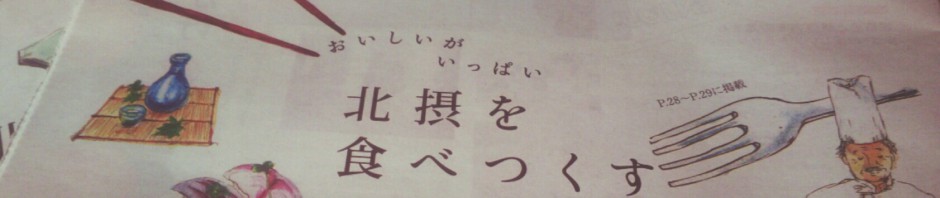 おいしいが
いっぱい
北摂を
食べつくす
P.28～P.29に掲載